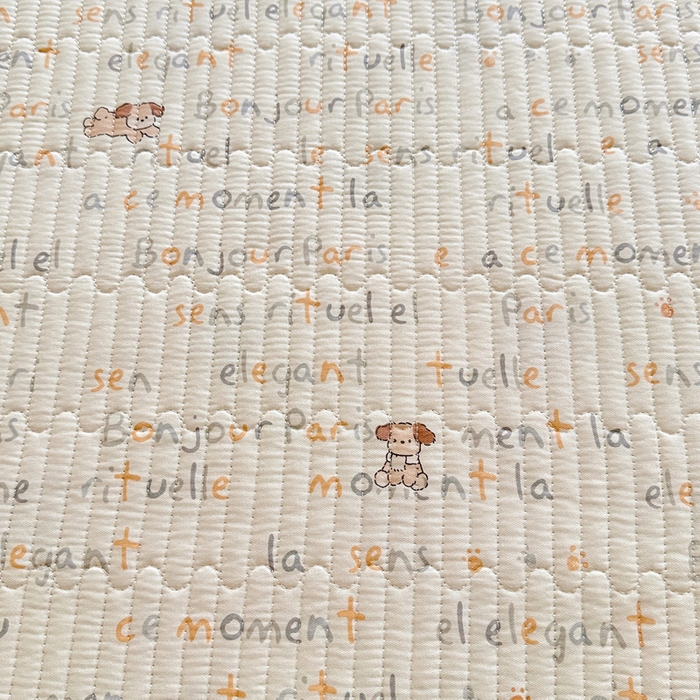 sens rituel elegant Bonjour Paris
ent elegant rituelle sens
Paris Bonjour Paris a ce momen
gant rituel le sens rituel e a
a ce moment la rituelle
el el Bonjour Paris e a ce momen
nt sens rituel el Paris
ri sen elegant tuelle sens
is Bonjour Paris ment la
ne rituelle moment la ele
elegant la sens
ce moment el elegant